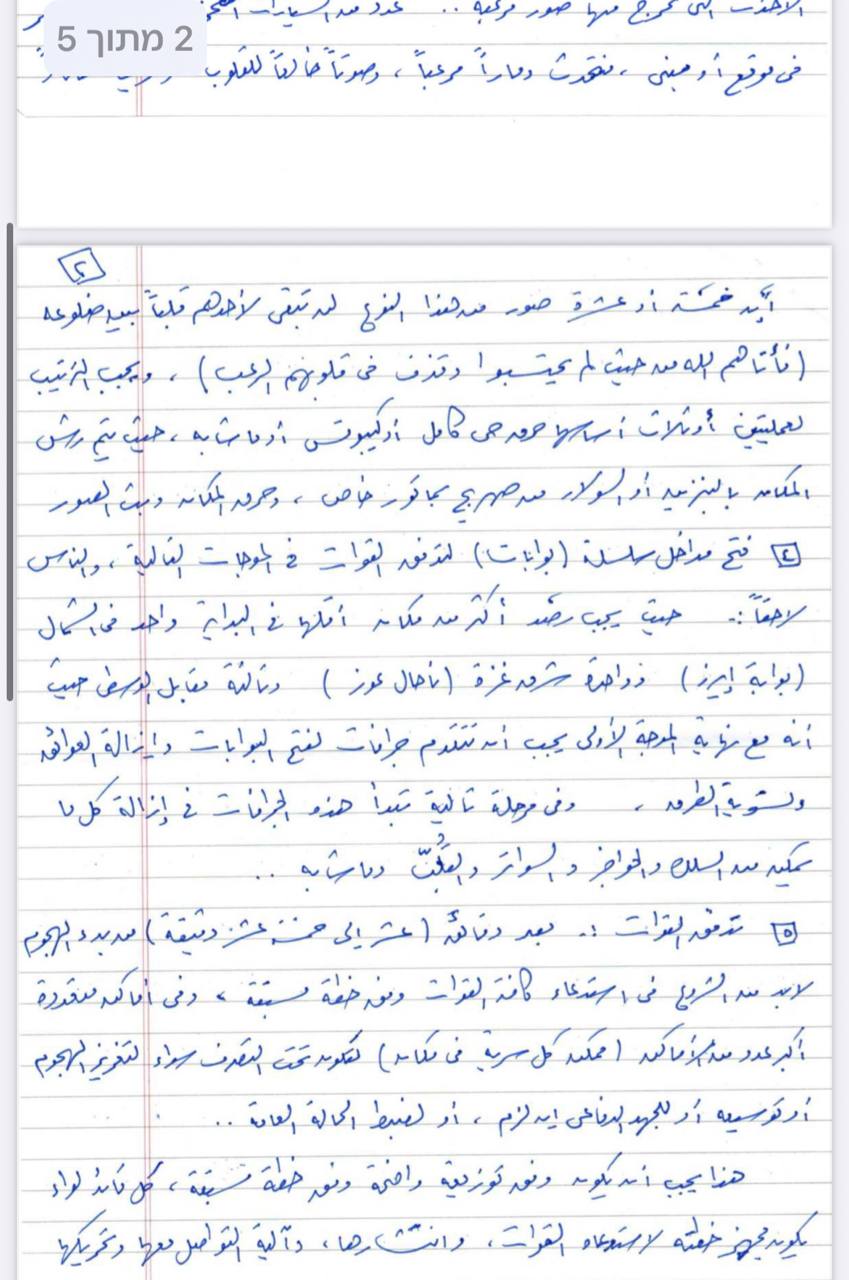 2 מתוך 5
صور مرعبة .. عدد من السيارات
في موقع أو مبنى ، فتحدث دماراً مرعباً ، وصوتاً خالعاً للقلوب
٢
خمسة أو عشرة صور من هذا النوع لن تبقى لأحدهم قلباً بين ضلوعه
(فأتاهم الله من حيث لم يحتسبوا وقذف في قلوبهم الرعب) ، ويجب الترتيب
لعمليتين أو ثلاث أساسها حرق حي كامل أو كيبوتس أو ما شابه ، حيث يتم رش
المكان بالبنزين أو السولار من صهريج خاص ، وحرق المكان وبث الصور
٤ فتح مداخل سلسلة (بوابات) لتدفق القوات في الموجات التالية ، والناس
لاحقاً :. حيث يجب رصد أكثر من مكان أقلها في البداية واحد في الشمال
(بوابة إيرز) وواحدة شرق غزة (ناحال عوز) وثالثة مقابل الوسطى حيث
أنه مع نهاية الموجة الأولى يجب أن تتقدم جرافات لفتح البوابات وإزالة العوائق
وتسوية الطرق ، وفي مرحلة تالية تبدأ هذه الجرافات في إزالة كل ما
يمكن من السلك والحواجز والسواتر وما شابه ..
٥ تدفق القوات :. بعد دقائق (عشر إلى خمسة عشر دقيقة) من بدء الهجوم
لابد من الشروع في استدعاء كافة القوات وفق خطة مسبقة ، وفي أماكن
أكبر عدد من الأماكن (ممكن كل سرية في مكان) لتكون تحت التصرف سواء لتعزيز الهجوم
أو توسيعه أو للجهد الدفاعي إن لزم ، أو لضبط الحالة العامة ..
هذا يجب أن يكون وفق واضحة وفق خطة مسبقة ، كل قائد لواء
يكون مجهز خطته لاستدعاء القوات ، وانتشارها ، وآلية التواصل معها وتحريكها